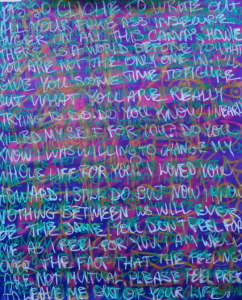 IT'S SO CLICHE TO WRITE OUT
ALL YOUR INSECURE
ON ALL THIS CANVAS, HONE
THERE IS A WORLD BEFORE YOU THAT
YOU ARE NOT THE ONLY ONE IN IT. I'LL
GIVE YOU SOME TIME TO FIGURE
OUT WHAT YOU ARE REALLY
TRYING TO DO. DO YOU KNOW I
MYSELF FOR YOU? DO YOU
KNOW I WAS WILLING TO CHANGE MY
WHOLE LIFE FOR YOU? I LOVED YOU
I STILL DO. BUT NOW I KNOW
NOTHING BETWEEN US WILL EVER
BE THE SAME. YOU DON'T FEEL FOR
ME AS I FEEL FOR YOU. I AM WELL
OVER THE FACT THAT THE FEELINGS
ARE NOT MUTUAL. PLEASE FEEL FREE
TO LEAVE ME OUT OF YOUR LIFE